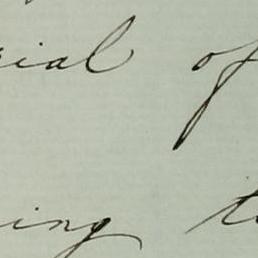 ial of
ing t